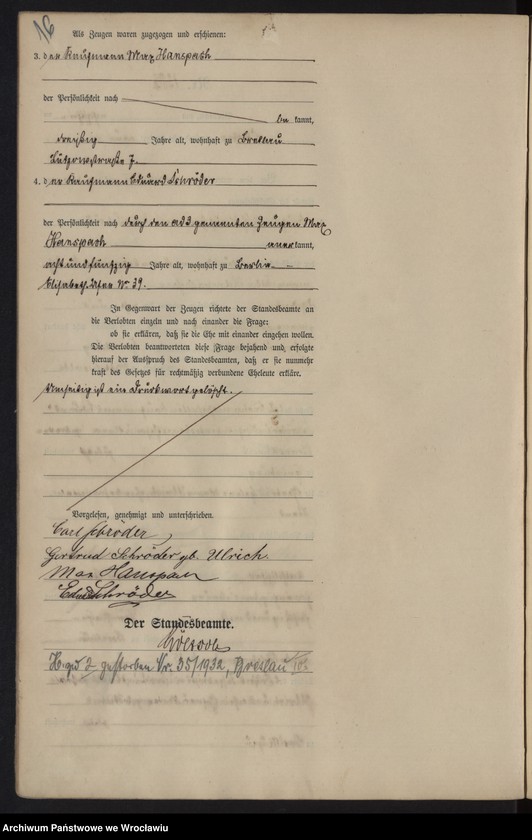 16
Als Zeugen waren zugezogen und erschienen:
3. der Kaufmann Max Hanspach
der Persönlichkeit nach
be kannt,
dreißig Jahre alt, wohnhaft zu Breslau
Lützowstraße 7.
4. der Kaufmann Eduard Schröder
der Persönlichkeit nach durch den ad 3 genannten Zeugen Max
Hanspach anerkannt,
achtundfünfzig Jahre alt, wohnhaft zu Berlin
Elisabeth-Ufer No 39.
In Gegenwart der Zeugen richtete der Standesbeamte an
die Verlobten einzeln und nach einander die Frage:
ob sie erklären, daß sie die Ehe mit einander eingehen wollen.
Die Verlobten beantworteten diese Frage bejahend und erfolgte
hierauf der Ausspruch des Standesbeamten, daß er sie nunmehr
kraft des Gesetzes für rechtmäßig verbundene Eheleute erkläre.
Umseitig ist eine Druckwort gelöscht.
Vorgelesen, genehmigt und unterschrieben.
Carl Schröder
Gertrud Schröder gb. Ulrich.
Max Hanspach
Eduard Schröder
Der Standesbeamte.
gestorben Nr. 35/1932, Breslau
Archiwum Państwowe we Wrocławiu